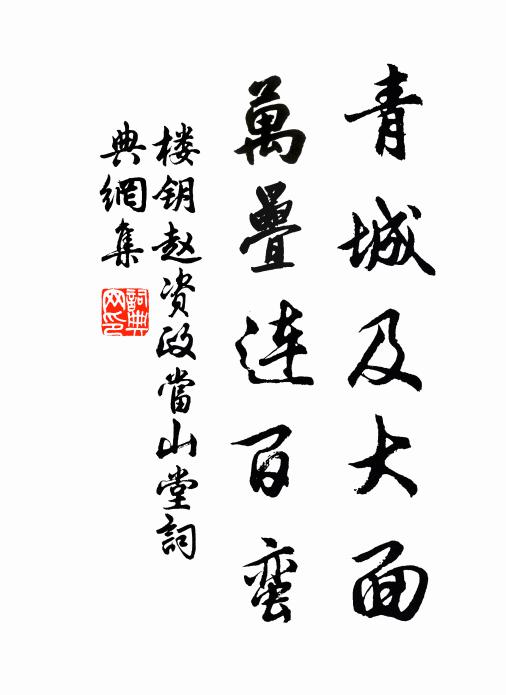 青城及大面
萬疊连百蛮
楼钥赵资政當山堂詞
典網集
詞典网印